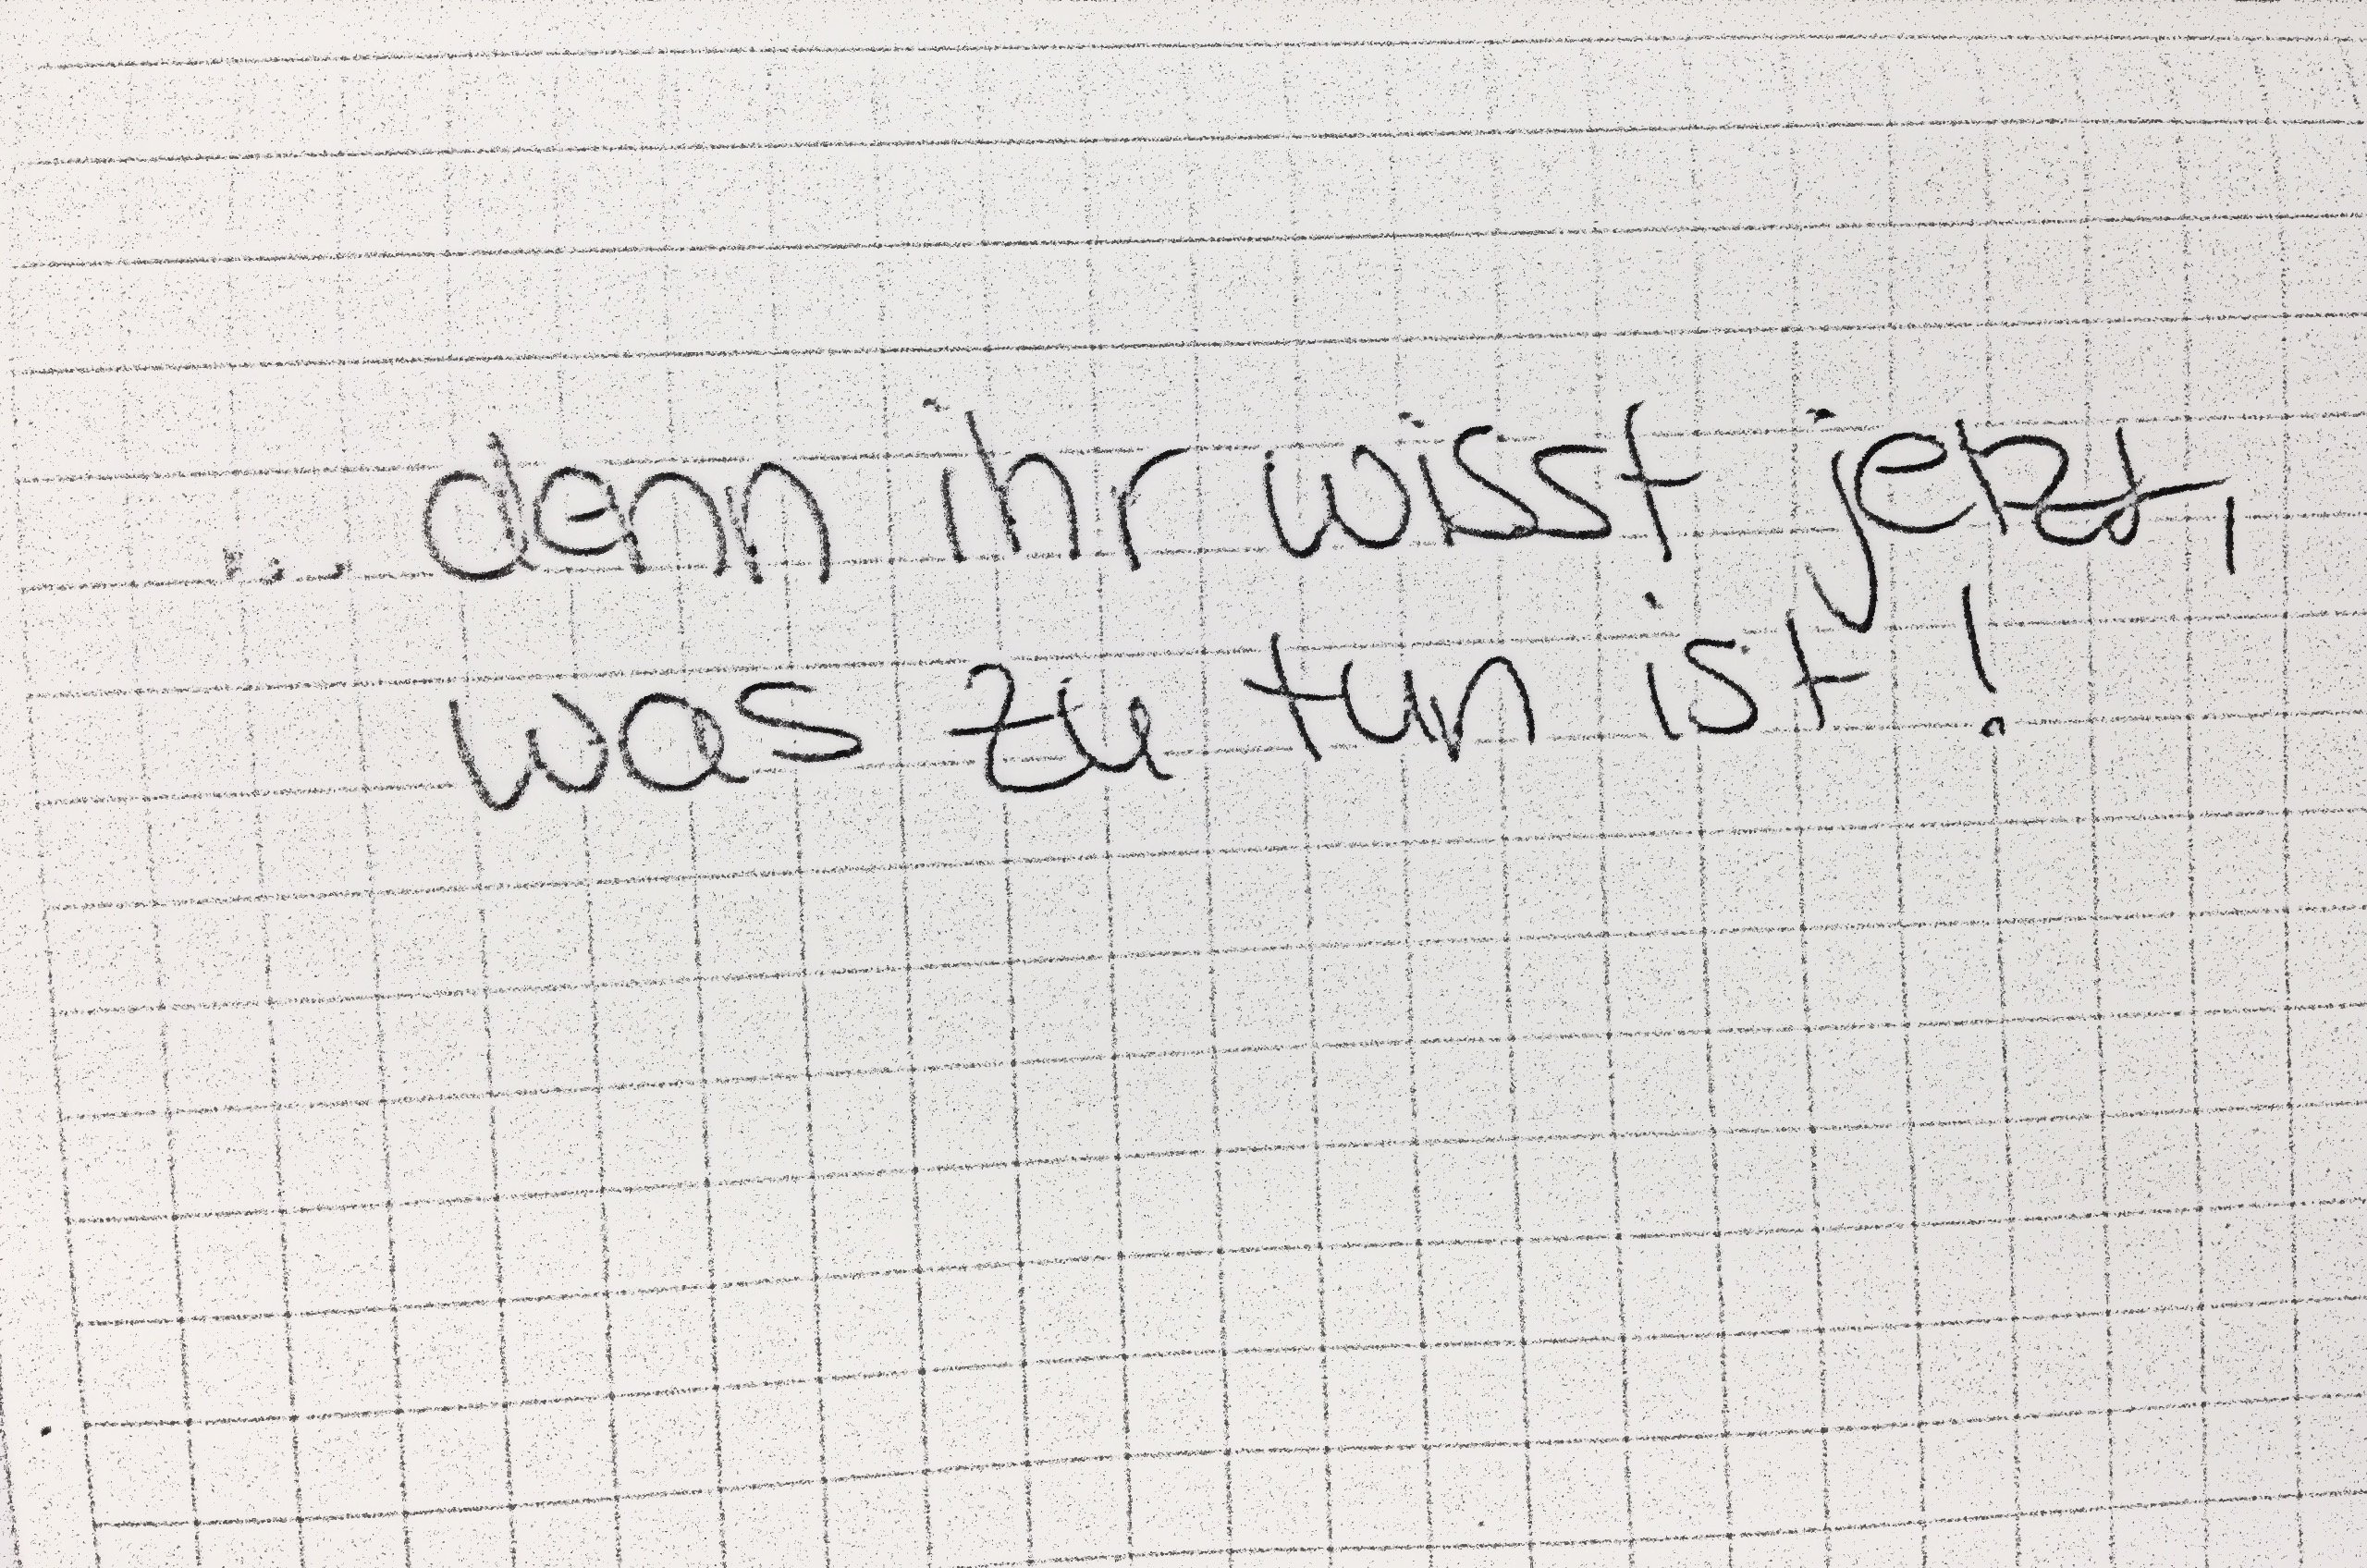 ... denn ihr wisst jetzt,
was zu tun ist!